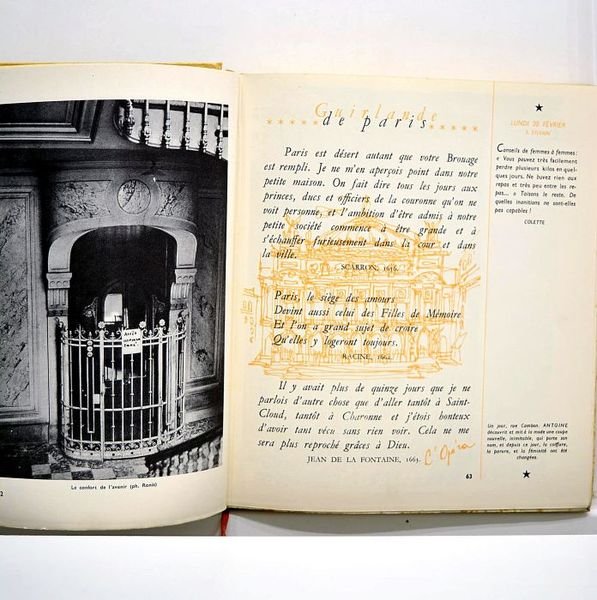 Le confort de l'avenir (ph. Ronis)
2
Guirlande
de paris
Paris est désert autant que votre Brouage
est rempli. Je ne m'en aperçois point dans notre
petite maison. On fait dire tous les jours aux
princes, ducs et officiers de la couronne qu'on ne
voit personne, et l'ambition d'être admis à notre
petite société commence à être grande et à
s'échauffer furieusement dans la cour et dans
la ville.
SCARRON, 1656.
Paris, le siège des amours
Devint aussi celui des Filles de Mémoire
Et l'on a grand sujet de croire
Qu'elles y logeront toujours.
RACINE,
Il y avait plus de quinze jours que je ne
parlois d'autre chose que d'aller tantôt à Saint-
Cloud, tantôt à Charonne et j'étois honteux
d'avoir tant vécu sans rien voir. Cela ne me
sera plus reproché grâces à Dieu.
JEAN DE LA FONTAINE, 1663.
L'Opéra
63
LUNDI 20 FÉVRIER
S. SYLVAIN
Conseils de femmes à femmes :
« Vous pouvez très facilement
perdre plusieurs kilos en quel-
ques jours. Ne buvez rien aux
repas et très peu entre les re-
pas... » Taisons le reste. De
quelles inanitions ne sont-elles
pas capables !
COLETTE
Un jour, rue Cambon, ANTOINE
découvrit et mit à la mode une coupe
nouvelle, inimitable, qui porte son
nom, et depuis ce jour, la coiffure,
la parure, et la féminité ont été
changées.